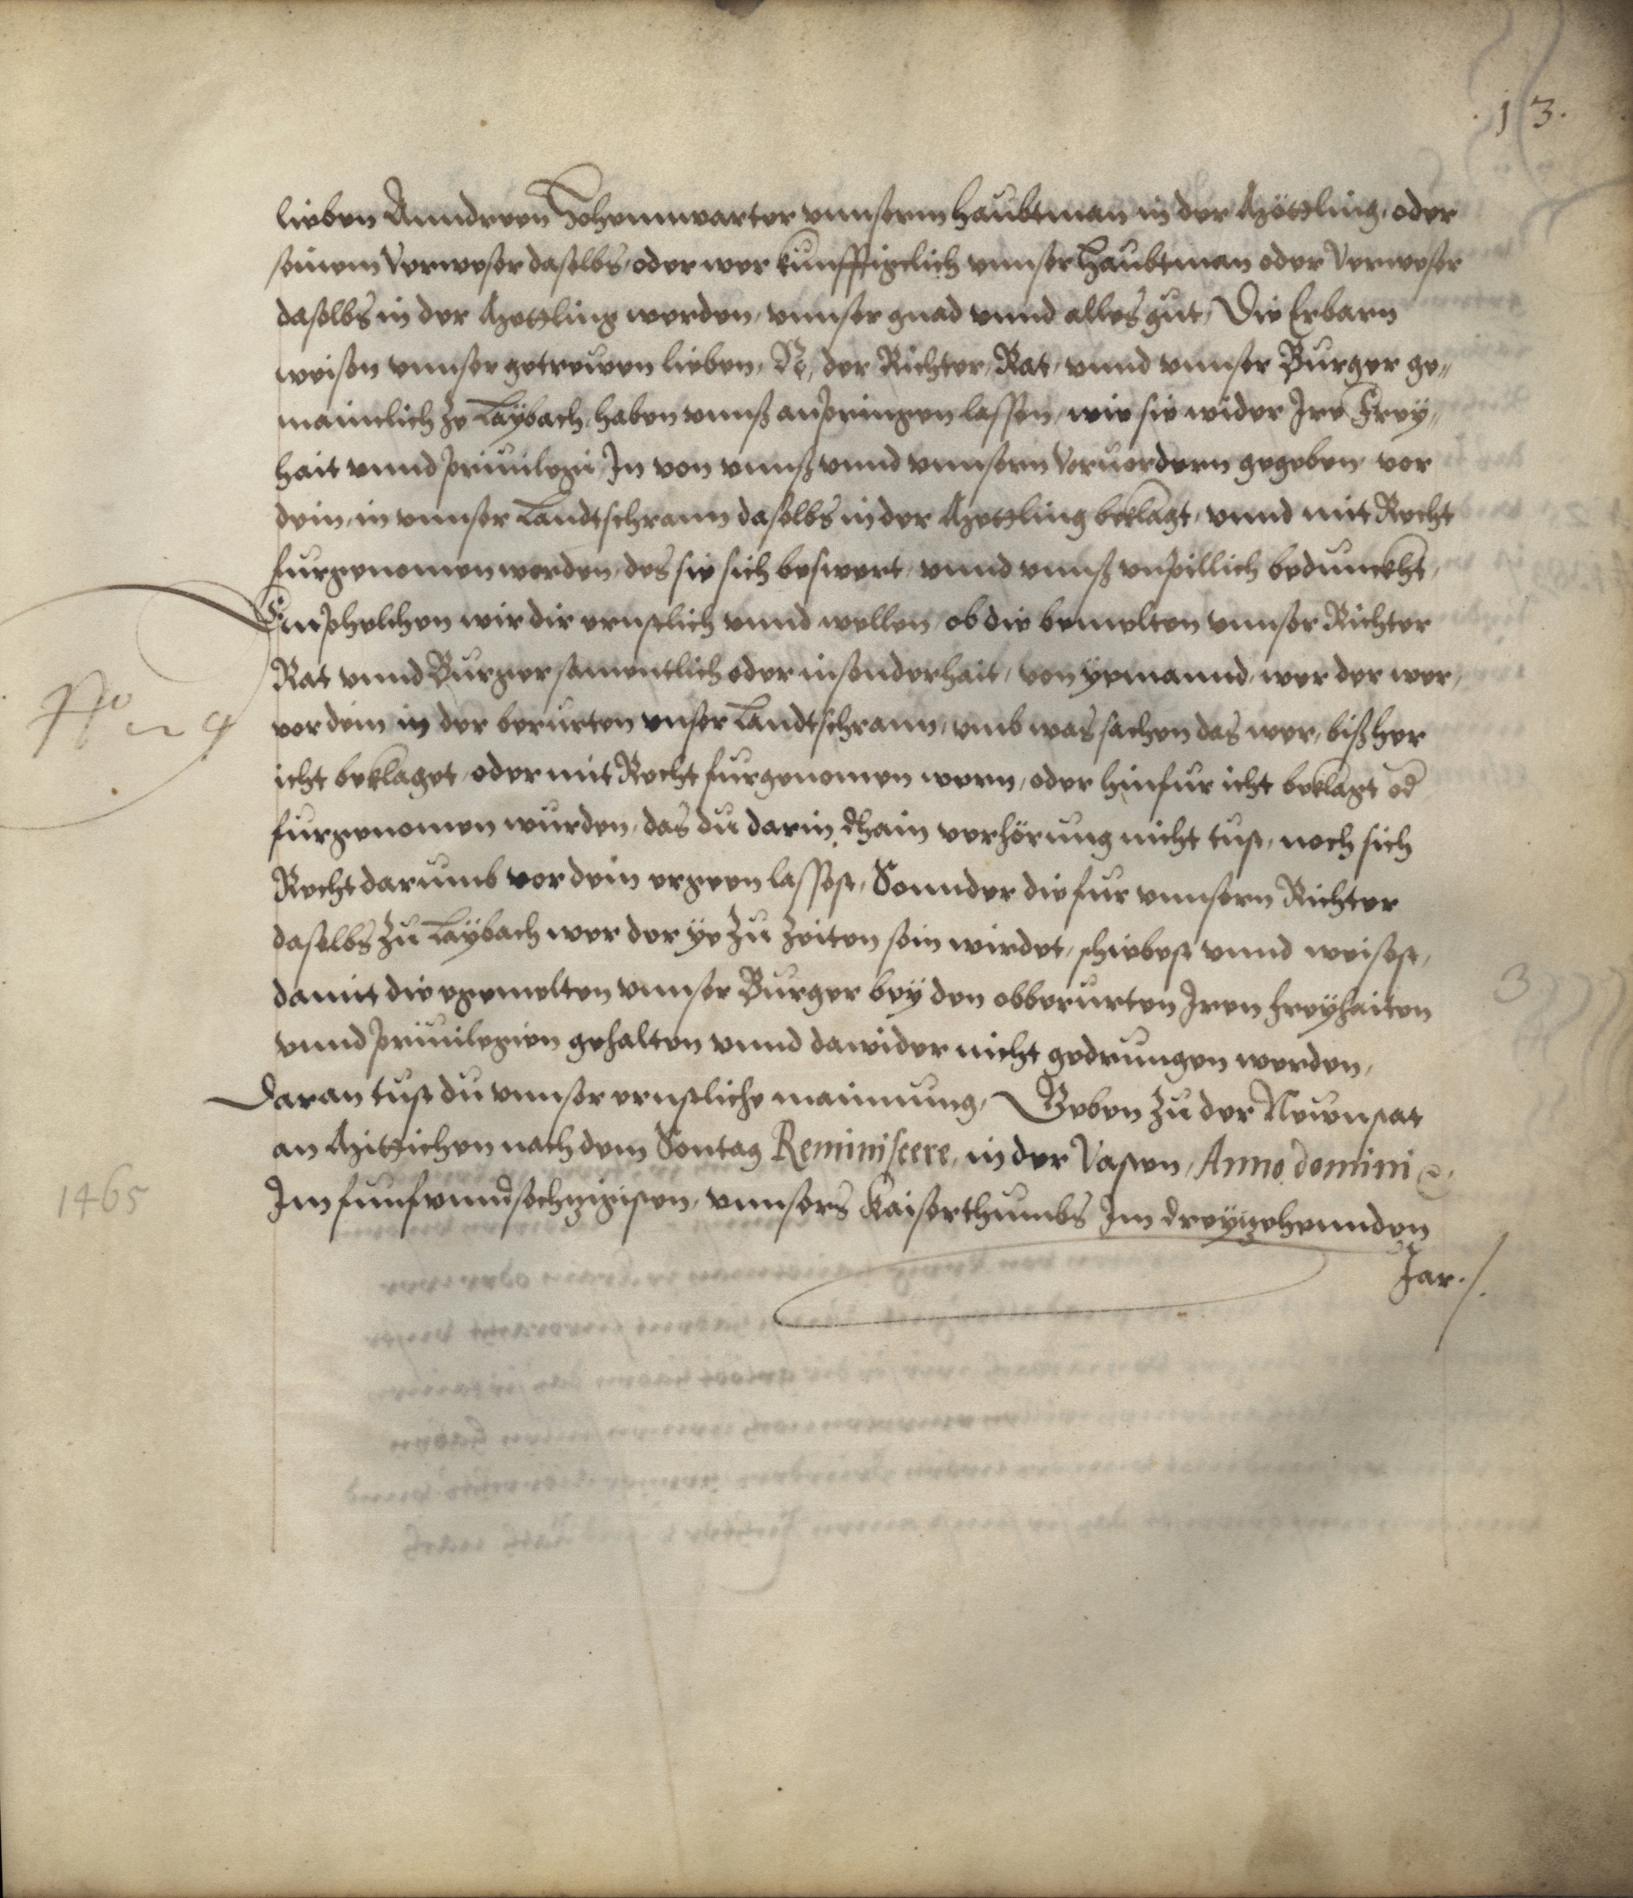 .13.
lieben Anndreen Hohennwarter vnnserm haubtman in der Mötling, oder
seinem Verweser daselbs, oder wer kunfftigclich vnnser Haubtman oder Verweser
daselbs in der Mettling werden, vnnser gnad vnnd alles gut, Die Erbarn
weisen vnnser getrewen lieben, N, der Richter, Rat, vnnd vnnser Burger ge„
mainclich ze Laÿbach, haben vnnß anpringen lassen, wie sie wider Ire Freÿ„
hait vnnd priuilegi, In von vnnß vnnd vnnsern Voruordern gegeben, vor
dein, in vnnser Landtschrann daselbs in der Mettling beklagt, vnnd mit Recht
furgenomen werden, des sie sich beswert, vnnd vnnß vnpillich bedunckht,
Emphelchen wir dir ernstlich vnnd wellen, ob die bemelten vnnser Richter
Rat vnnd Burger samentlich oder in sonderhait, von ÿemannd, wer der wer,
vor dein in der berurten vnser Landtschrann, vmb was sachen das wer, bißher
icht beklaget, oder mit Recht furgenomen wern, oder hinfur icht beklagt od
furgenomen wurden, das du darin dhain verhörung nicht tust, noch sich
Recht darumb vor dein ergeen lassest, Sonnder die fur vnnsern Richter
daselbs zu Laÿbach wer der ÿe zu Zeiten sein wirdet, schiebest vnnd weisest,
damit die egemelten vnnser Burger beÿ den obberurten Iren Freÿhaiten
vnnd priuilegien gehalten vnnd dawider nicht gedrungen werden,
Daran tust du vnnser ernstliche mainnung, Geben zu der Newnstat
an Mittichen nach dem Sontag Reminiscere, in der Vasten, Anno domini
1465
Im funfvnndsechzigisten, vnnsers Kaiserthumbs Im dreÿzehennden
Jar ./.